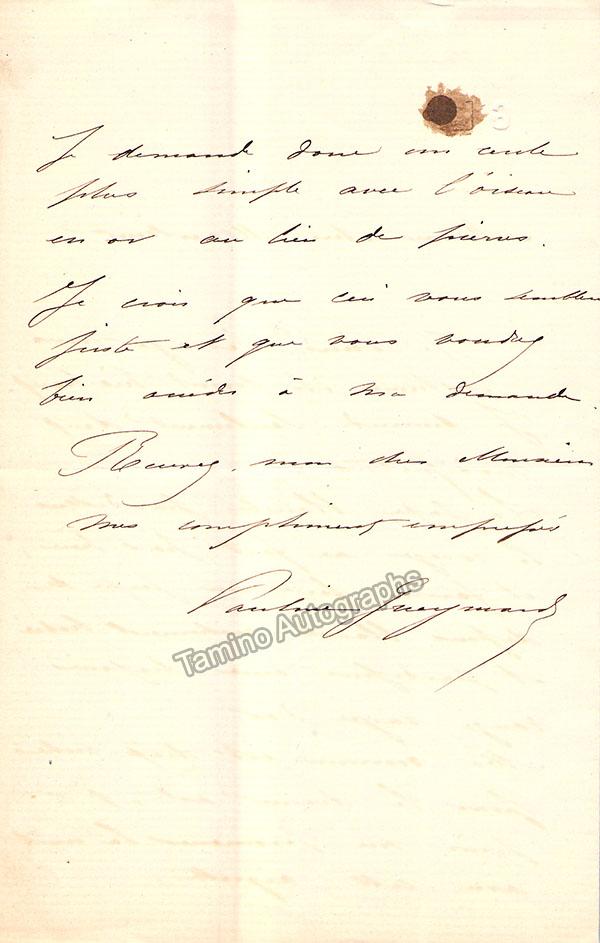 Je demande donc un
plus simple avec l'oiseau
en or au lieu de pierres.
Je crois que ceci vous semblera
juste et que vous voudrez
bien accéder à ma demande.
Recevez, mon cher Monsieur
mes compliments empressés
Pauline Gueymard
Tamino Autographs